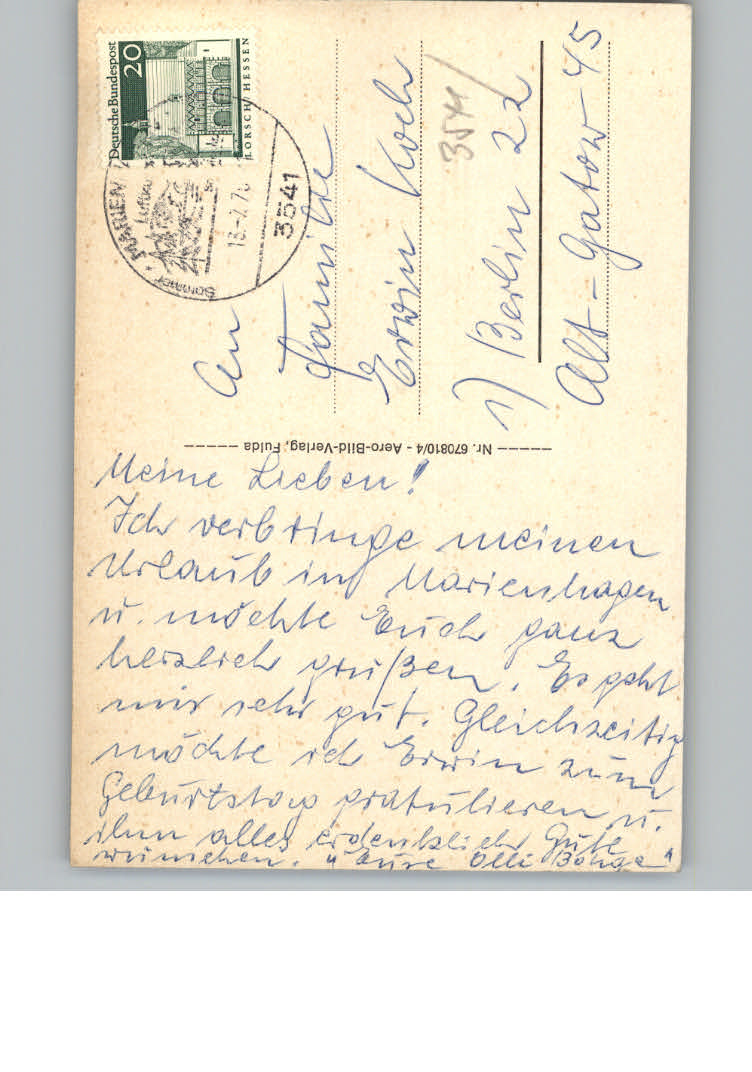 Deutsche Bundespost
20
LORSCH/HESSEN
MARIEN
Luftku
Sommer
18.-7.7
3541
An
Familie
Erwin Koch
3541
1) Berlin 22
Alt-Gatow 45
Nr. 670810/4 - Aero-Bild-Verlag, Fulda
Meine Lieben!
Ich verbringe meinen
Urlaub in Marienhagen
u. möchte Euch ganz
herzlich grüßen. Es geht
mir sehr gut. Gleichzeitig
möchte ich Erwin zum
Geburtstag gratulieren u.
ihm alles erdenklich Gute
wünschen. "Eure Olli